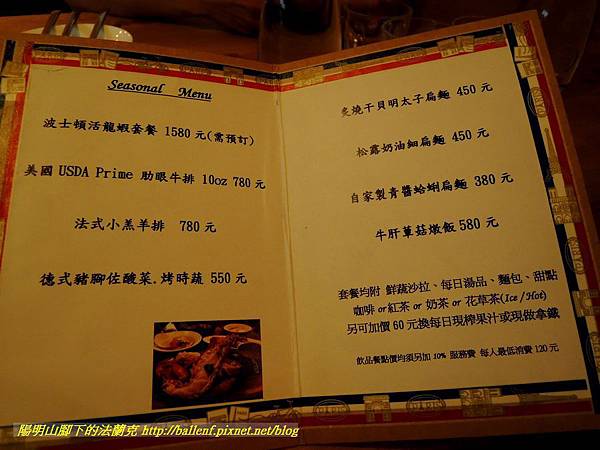 Seasonal Menu
波士頓活龍蝦套餐 1580元(需預訂)
美國 USDA Prime 肋眼牛排 10oz 780元
法式小羔羊排 780元
德式豬腳佐酸菜.烤時蔬 550元
炙燒干貝明太子扁麵 450元
松露奶油細扁麵 450元
自家製青醬蛤蜊扁麵 380元
牛肝蕈菇燉飯 580元
套餐均附 鮮蔬沙拉、每日湯品、麵包、甜點
咖啡 or 紅茶 or 奶茶 or 花草茶(Ice/Hot)
另可加價60元換每日現榨果汁或現做拿鐵
飲品餐點價均須另加 10% 服務費 每人最低消費 120元
陽明山腳下的法蘭克 http://ballenf.pixnet.net/blog